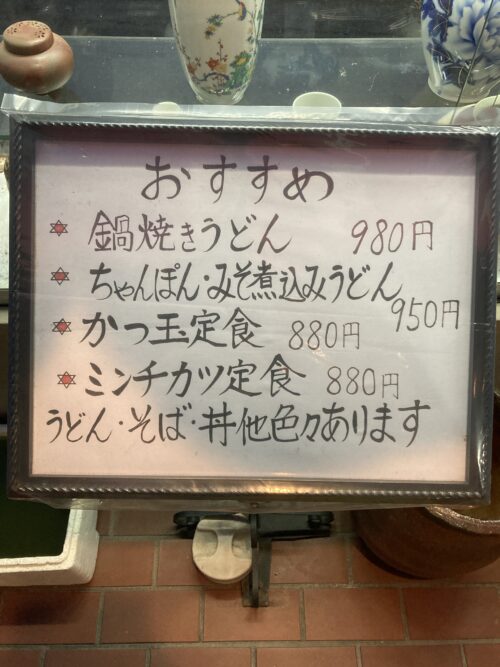 おすすめ
鍋焼きうどん 980円
ちゃんぽん・みそ煮込みうどん 950円
かつ玉定食 880円
ミンチカツ定食 880円
うどん・そば・丼他色々あります